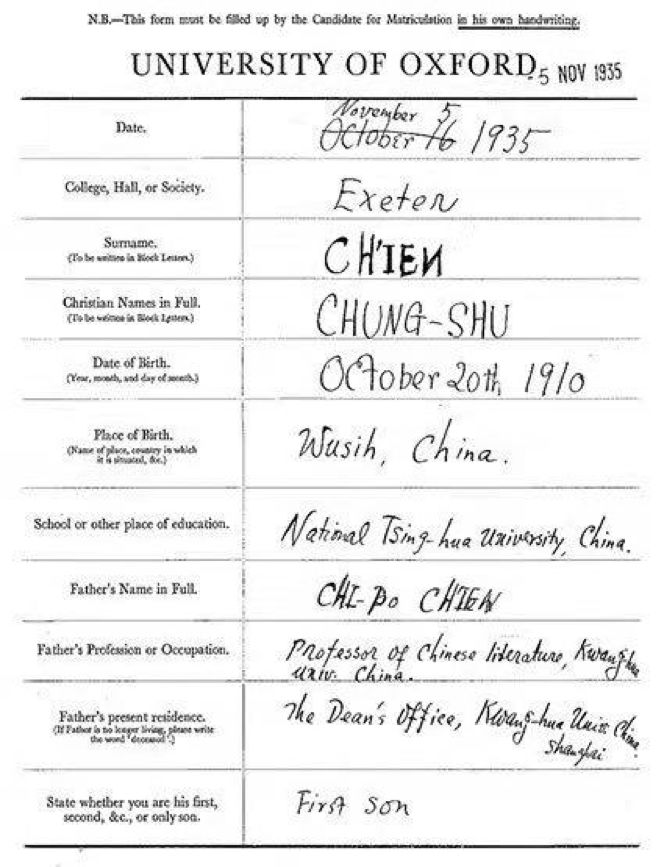 N.B.—This form must be filled up by the Candidate for Matriculation in his own handwriting.
UNIVERSITY OF OXFORD
-5 NOV 1935
Date.
November 5
October 16 1935
College, Hall, or Society.
Exeter
Surname.
(To be written in Block Letters.)
CH'IEN
Christian Names in Full.
(To be written in Block Letters.)
CHUNG-SHU
Date of Birth.
(Year, month, and day of month.)
October 20th 1910
Place of Birth.
(Name of place, country in which
it is situated, &c.)
Wusih, China.
School or other place of education.
National Tsing-hua University, China.
Father's Name in Full.
CHI-Po CH'IEN
Father's Profession or Occupation.
Professor of Chinese literature, Kwang-hua
Univ. China.
Father's present residence.
(If Father is no longer living, please write
the word "deceased".)
The Dean's Office, Kwang-hua Univ. China.
Shanghai
State whether you are his first,
second, &c., or only son.
First son